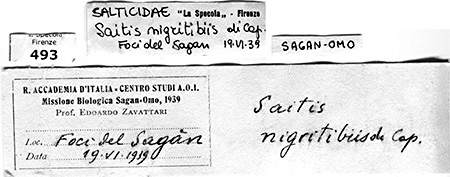 SALTICIDAE "La Specola" - Firenze
Saitis nigritibiis di Cap.
Foci del Sagan 19·VI·39
La Specola
Firenze
493
SAGAN-OMO
R. ACCADEMIA D'ITALIA - CENTRO STUDI A.O.I.
Missione Biologica Sagan-Omo, 1939
Prof. EDOARDO ZAVATTARI
Loc. Foci del Sagàn
Data 19·VI·1919
Saitis
nigritibiis di Cap.